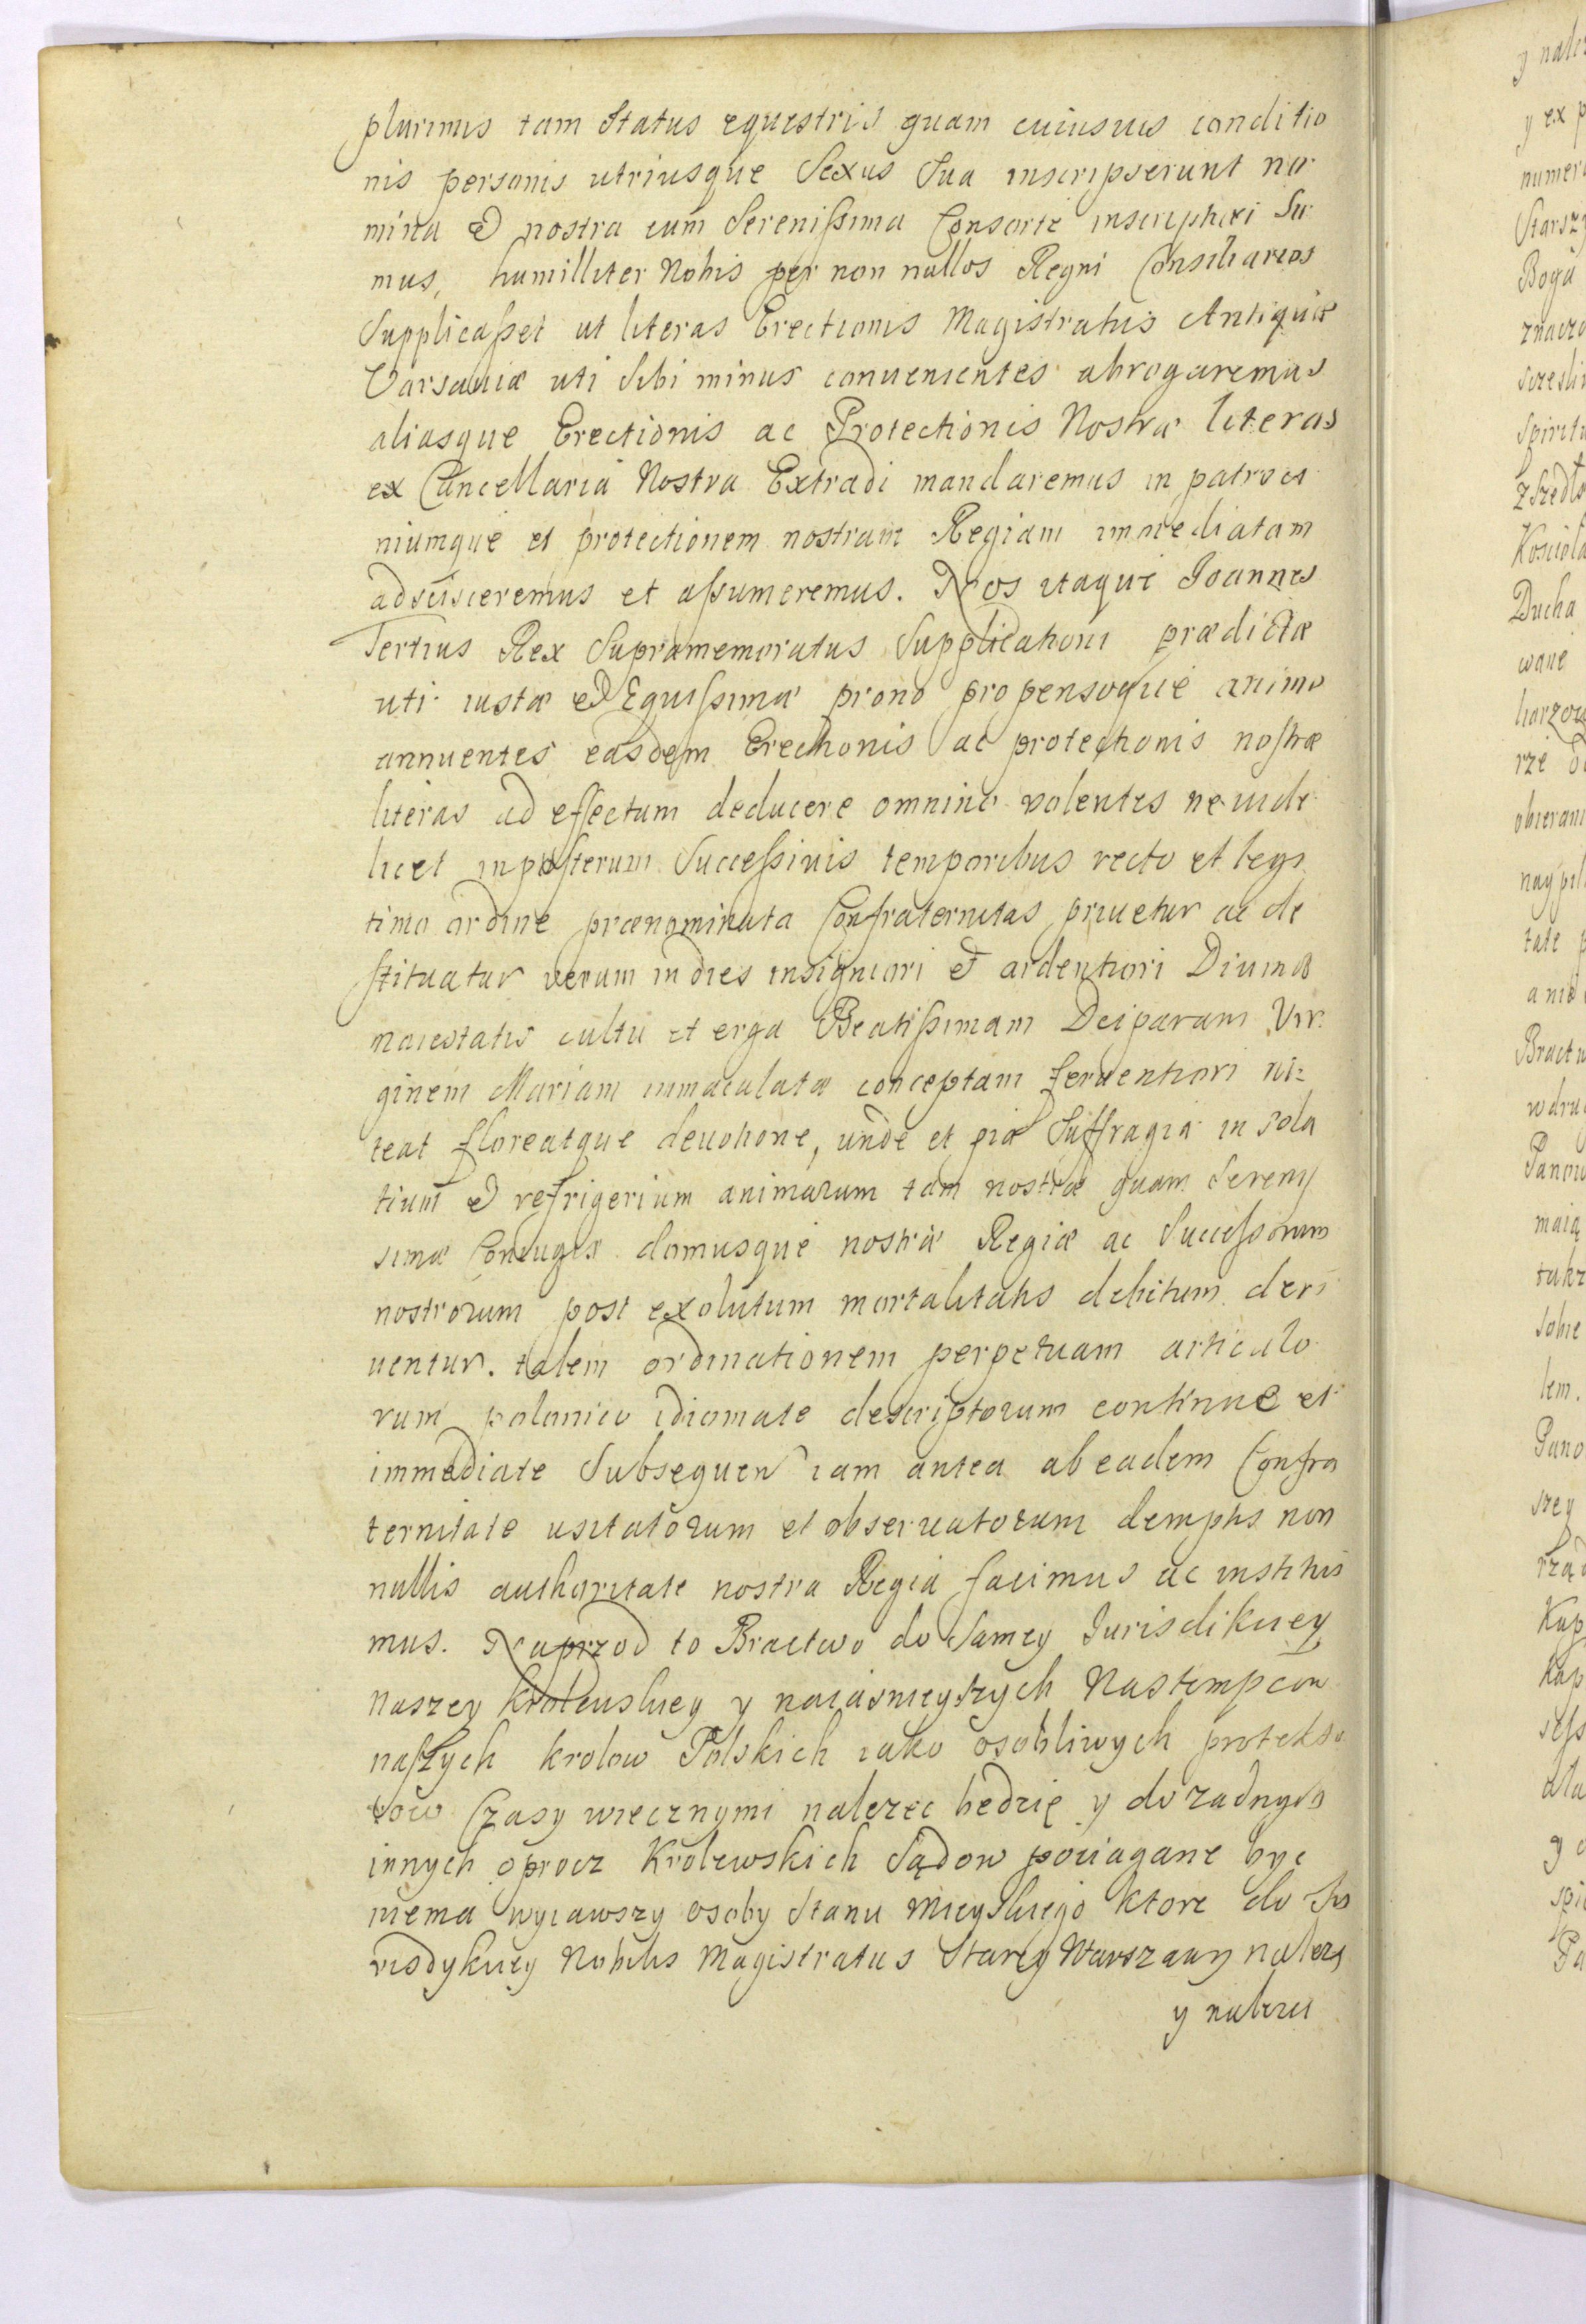 plurimis tam Status equestris quam cuiusvis conditio
nis personis utriusque Sexus Sua inscripserunt no
mina et nostra cum Serenissima Consorte inscriptaxi Su
mus, humilliter Nobis per non nullos Regni Consiliarios
Supplicasset ut literas Erectionis Magistratus Antiquæ
Varsaviæ uti Sibi minus convenientes abrogaremus
aliasque Erectionis ac Protectionis Nostræ literas
ex Cancellaria Nostra Extradi mandaremus in patroci
niumque et protectionem nostram Regiam immediatam
adscisceremus et assumeremus. Nos itaque Joannes
Tertius Rex Supramemoratus Supplicationi prædictæ
uti iustæ et Equissimæ prono propensoque animo
annuentes easdem Erectionis ac protectionis nostræ
literas ad effectum deducere omnino volentes ne vide
licet inposterum Successivis temporibus recto et legi
timo ordine prænominata Confraternitas privetur ac de
stituatur verum in dies insigniori et ardentiori Divinæ
maiestatis cultu et erga Beatissimam Deiparam Vir
ginem Mariam immaculatæ conceptam ferventiori ni=
teat floreatque devotione, unde et pia Suffragia in sola
tium et refrigerium animarum tam nostræ quam Sereniss
simæ Coniugis domusque nostræ Regiæ ac Successorum
nostrorum post exolutum mortalitatis debitum deri
ventur. talem ordinationem perpetuam articulo
rum polonico idiomate descriptorum continue et
immediate Subsequen iam antea ab eadem Confra
ternitate usitatorum et observatorum demptis non
nullis authoritate nostra Regia facimus ac institui
mus. Naprzod to Bractwo do Samey Jurisdikciey
Naszey Krolewskiey y naiasnieyszych Nastempcow
naszych krolow Polskich iako osobliwych protekto
row Czasy wiecznymi nalezec bedzie y do zadnych
innych oprocz Krolewskich Sądow pociagane byc
niema wyiawszy osoby Stanu Mieyskiego ktore do Ju
risdykciey Nobilis Magistratus Starey Warszawy nalezą
y nalezec